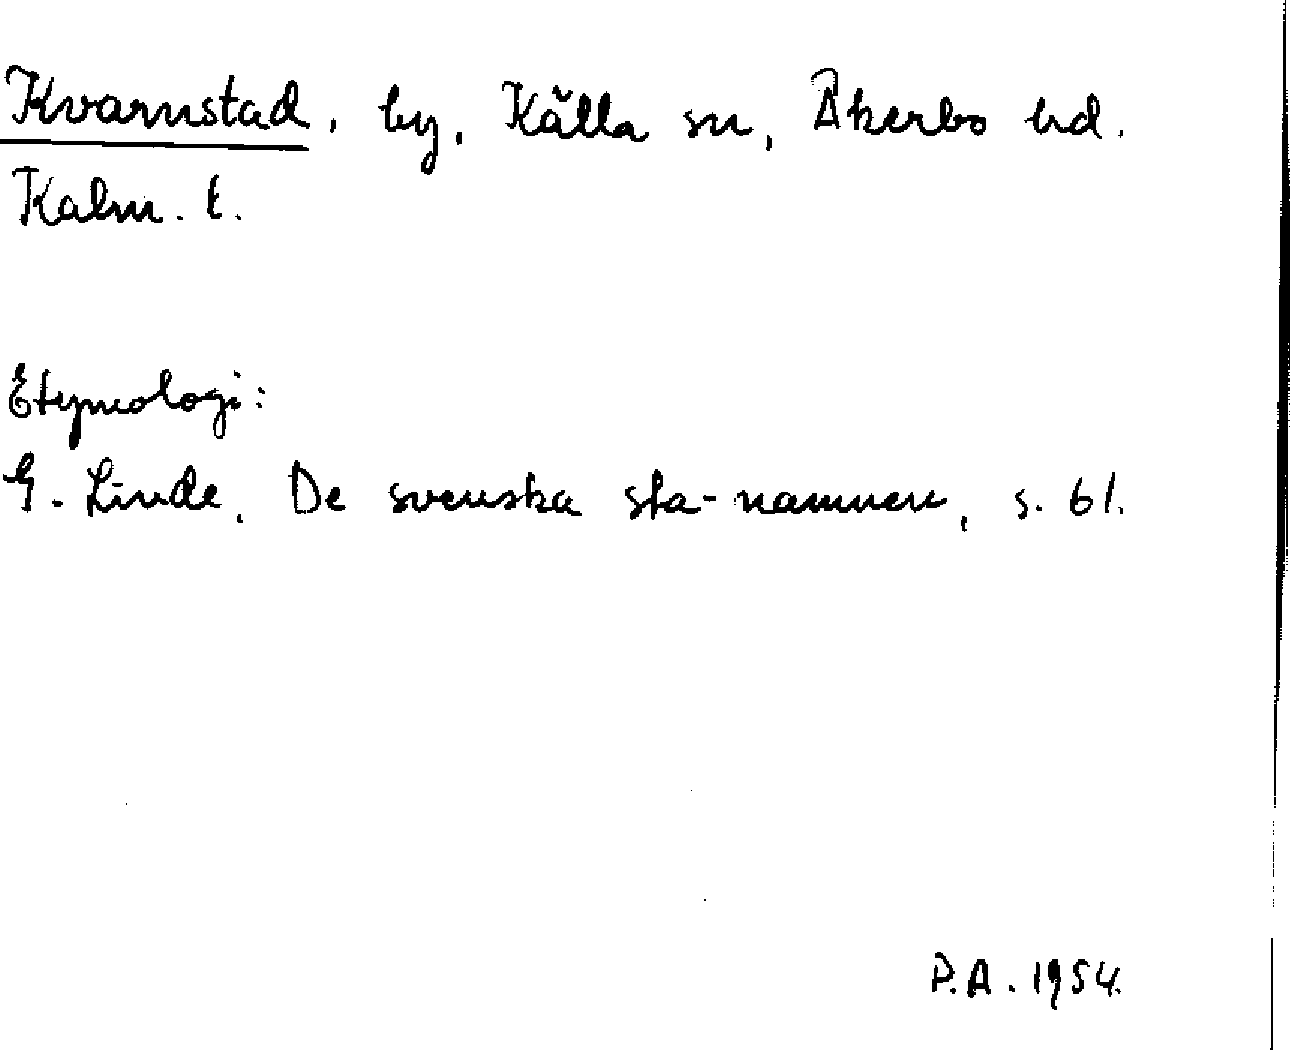 Kvarnstad, by, Källa sn, Åkerbo hd.
Kalm. l.
Etymologi:
G. Linde, De svenska sta-namnen, s. 61.
P.A. 1954.